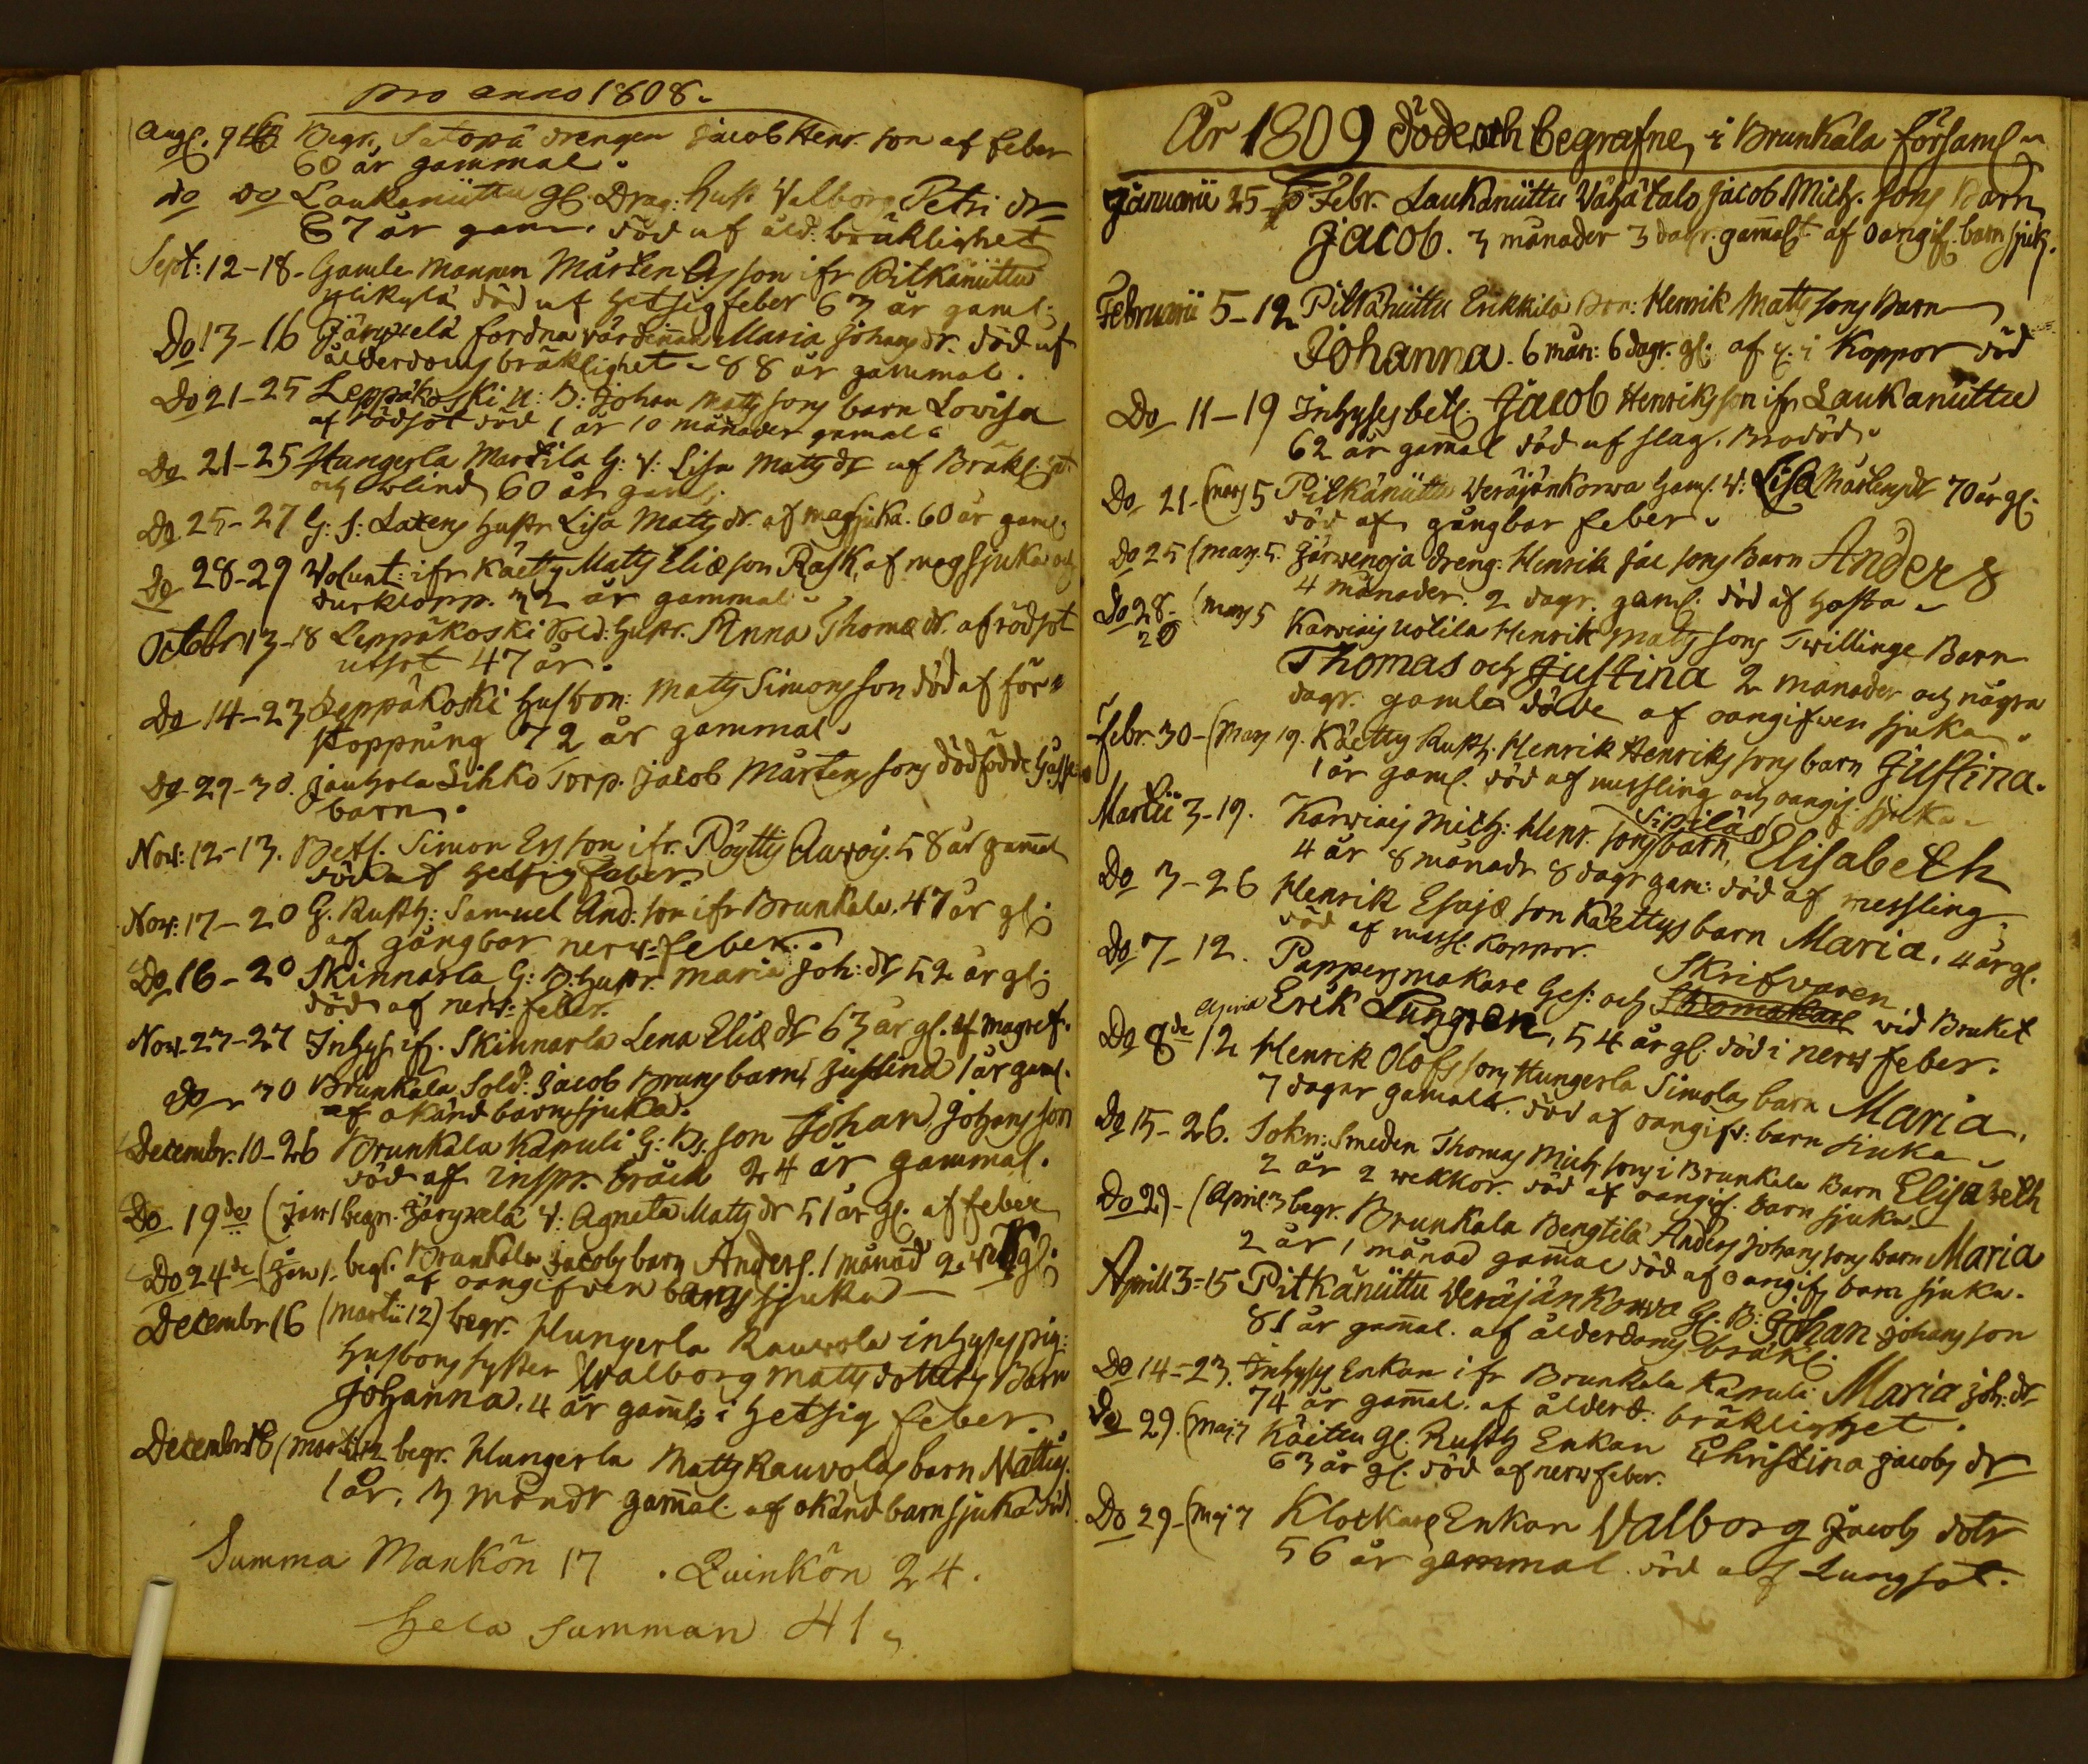 pro anno 1808.
Aug. 9 Begr. Satopä drengen Jacob Henr. son af feber
60 år gammal.
do do Laukaniittu gl. Drag. hustr. Valborg Petri dr
67 år gam. död af åld. bräklighet
Sept: 12-18. Gamle mannen Mårten son ifr Pitkäniittu
ylikylä död af hetsig feber 63 år gaml:
Do 13-16 Järyxelä fordna värdinnan Maria Johans dr. död af
ålderdoms bräklighet - 88 år gammal.
Do 21-25 Leppäkoski U: B: Johan Mats sons barn Lovisa
af rödsot död 1 år 10 månader gamal
Do 21-25 Hungerla Marttila G: V: Lisa Mats dr af Bräkl.
och blind 60 år gaml.
Do 25-27 G: S: Latens hustr Lisa Mats dr. af magsjuka. 60 år gaml.
Do 28-29 Volunt: ifr Käetty Matts Eliæ son Rask, af magsjuka och
durklopp. 32 år gammal
Octobr 13-18 Leppäkoski Sold: hustr. Anna Thomæ dr. af rödsot
utsot 47 år.
Do 14-23 Leppäkoski husbon: Mats Simons son död af för-
stoppning 72 år gammal.
Do 29-30. Jauhola Sihko Torp. Jacob Mårtens sons dödfödde Gosse
barn.
Nov: 12-13. Betl. Simon Ers son ifr. Pöytis Auvois. 58 år gamal
död af hetsig feber.
Nov: 17-20 G. Rusth: Samuel And: son ifr Brunkala. 47 år gl:
af gångbar nerv-feber.
Do 16-20 Skinnarla G: B: hustr. Maria Joh: dr 52 år gl:
död af nerv: feber.
Nov. 27-27 Inhys. if. Skinnarla Lena Eliæ dr 63 år gl. af magref.
Do - 30 Brunkala Sold: Jacob Bruns barn Justina 1 år gaml.
af okänd barnsjuka.
Decembr. 10-26 Brunkala Kapuli G: B: son Johan Johans son
död af inspr. bråck 24 år gammal.
Do 19de (Jan 1 begr. Järyxelä V: Agneta Mats dr 51 år gl. af feber
Do 24de (Jan 1. begr. Brunkala Jacobs barn Anders. 1 månad 2. gl:
af oangifven barnsjuka
Decembr 16 (Martii 12) begr. Hungerla Rauvola inhyses pig:
husbons syster Walborg Mats dotters Barn
Johanna. 4 år gamls i hetsig feber.
Decembr 18 (Martii 12 begr. Hungerla Mats Rauvolas barn Mattis.
1 år. 3 månadr gamal af okänd barnsjuka död
Summa Mankön 17 . Quinkön 24.
Hela summan 41
År 1809 döde och begrafne, i Brunkala församl
Januarii 25-5 Febr. Laukaniittu Vähätalo Jacob Mich. sons Barn
Jacob. 3 månader 3 dagr. gamalt af oangif. barn sjuk.
Februarii 5-12 Pitkäniittu Erikkilä Bon: Henrik Mats sons Barn
Johanna. 6 mån: 6 dagr. gl: af i Koppor död
Do 11-19 Inhyses betl. Jacob Henriks son ifr Laukaniittu
62 år gamal död af slag. Brådöd.
Do 21-(Mars 5 Pitkäniittu Veräjänkorwa Gaml. V: Lisa Mårtens dr 70 år gl.
död af gångbar feber.
Do 25 (Mars 5. Järwenoja dreng. Henrik Jac sons Barn Anders
4 månader. 2 dagr. gaml. död af hosta
Do 28- (Mars 5 Karviais Uotila Henrik Mats sons Twillinge Barn
20
Thomas och Justina 2 månader och några
dagr. gamla döde af oangifven sjuka.
Febr. 30-(Mars 19. Käetty Rusth. Henrik Henriks sons barn Justina.
1 år gaml. död af messling och oangif. sjuka.
Martii 3-19. Karwiais Mich: Henr. sons Sipiläs barn, Elisabeth
4 år 8 månadr 8 dagr gam: död af messling
Do 3-26 Henrik Esajæ son Käettys barn Maria. 4 år gl.
död af messl. koppor.
Do 7-12. Pappersmakare Ges: och Skrifvaren vid Bruket
Erik Lungren, 54 år gl. död i nerv feber.
Do 8de 12 Henrik Olofs sons Hungerla Simolas barn Maria.
7 dagar gamalt. död af oangifv: barn sjuka
Do 15-26. Sokn: Smeden Thomas Mich sons i Brunkala Barn Elisabeth
2 år 2 wekkor. död af oangif. barn sjuka
Do 29-(April 3 begr. Brunkala Bengtilä Anders Johans sons barn Maria
2 år 1 månad gamal död af oangif barn sjuka.
Aprill 3-15 Pitkäniittu Veräjänkorwa Gl. B: Johan Johans son
81 år gamal. af ålderdoms bräkl:
Do 14-23. Inhyses Enkan ifr Brunkala Kapuli Maria Joh: dr
74 år gamal. af ålderd: bräklighet.
Do 29. (Maj 7 Käittu gl. Rusth Enkan Christina Jacobs dr
63 år gl. död af nervfeber.
Do 29-(Maj 7 Klockare Enkan Valborg Jacobs dotr
56 år gammal. död af Lungsot.